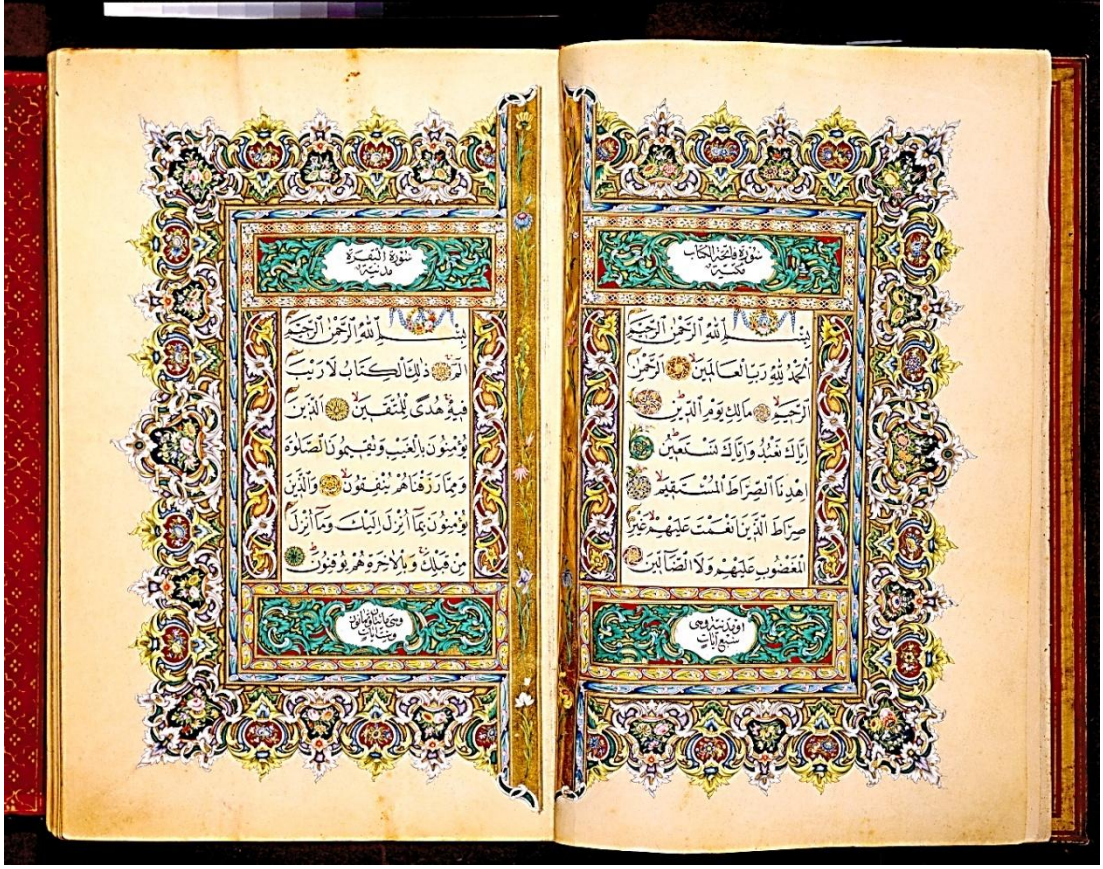 سُورَةُ فَاتِحَةِ الْكِتَابِ
مَكِّيَّة
بِسْمِ اللّٰهِ الرَّحْمٰنِ الرَّحِيمِ
اَلْحَمْدُ لِلّٰهِ رَبِّ الْعَالَمِينَ الرَّحْمٰنِ
الرَّحِيمِ مَالِكِ يَوْمِ الدِّينِ
اِيَّاكَ نَعْبُدُ وَاِيَّاكَ نَسْتَعِينُ
اِهْدِنَا الصِّرَاطَ الْمُسْتَقِيمَ
صِرَاطَ الَّذِينَ اَنْعَمْتَ عَلَيْهِمْ غَيْرِ
الْمَغْضُوبِ عَلَيْهِمْ وَلَا الضَّٓالِّينَ
سَبْعُ اٰيَاتٍ
سُورَةُ الْبَقَرَةِ
مَدَنِيَّة
بِسْمِ اللّٰهِ الرَّحْمٰنِ الرَّحِيمِ
الٓمٓ ذٰلِكَ الْكِتَابُ لَا رَيْبَ
فِيهِ هُدًى لِلْمُتَّقِينَ اَلَّذِينَ
يُؤْمِنُونَ بِالْغَيْبِ وَيُقِيمُونَ الصَّلٰوةَ
وَمِمَّا رَزَقْنَاهُمْ يُنْفِقُونَ وَالَّذِينَ
يُؤْمِنُونَ بِمَٓا اُنْزِلَ اِلَيْكَ وَمَٓا اُنْزِلَ
مِنْ قَبْلِكَ وَبِالْاٰخِرَةِ هُمْ يُوقِنُونَ